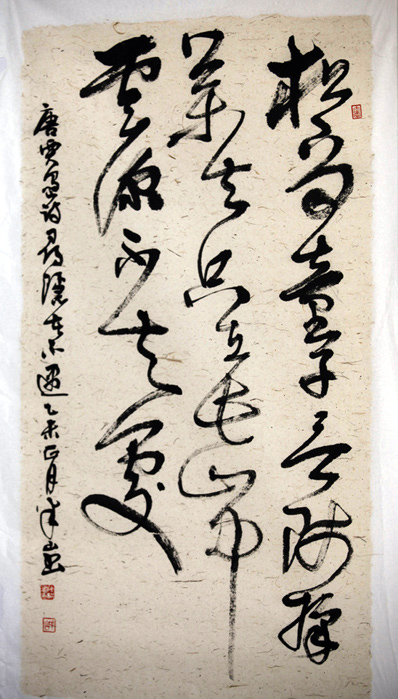 松下问童子言师採
药去只在此山中
雲深不知處
唐贾岛诗尋隐者不遇乙未正月